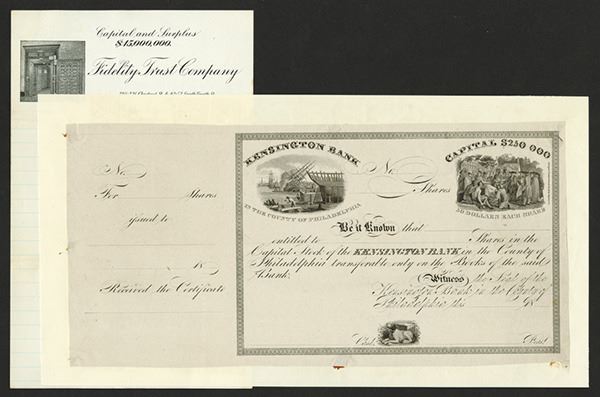 Capital and Surplus
$15,000,000.
Fidelity Trust Company
No.
For Shares
issued to
18
Received the Certificate
KENSINGTON BANK
IN THE COUNTY OF PHILADELPHIA
No. Shares
CAPITAL $250 000
50 DOLLARS EACH SHARE
Be it Known that
entitled to Shares in the
Capital Stock of the KENSINGTON BANK in the County of
Philadelphia transferable only on the Books of the said
Bank.
Witness the Seal of the
Kensington Bank in the County of
Philadelphia this 18
Cash. Prest